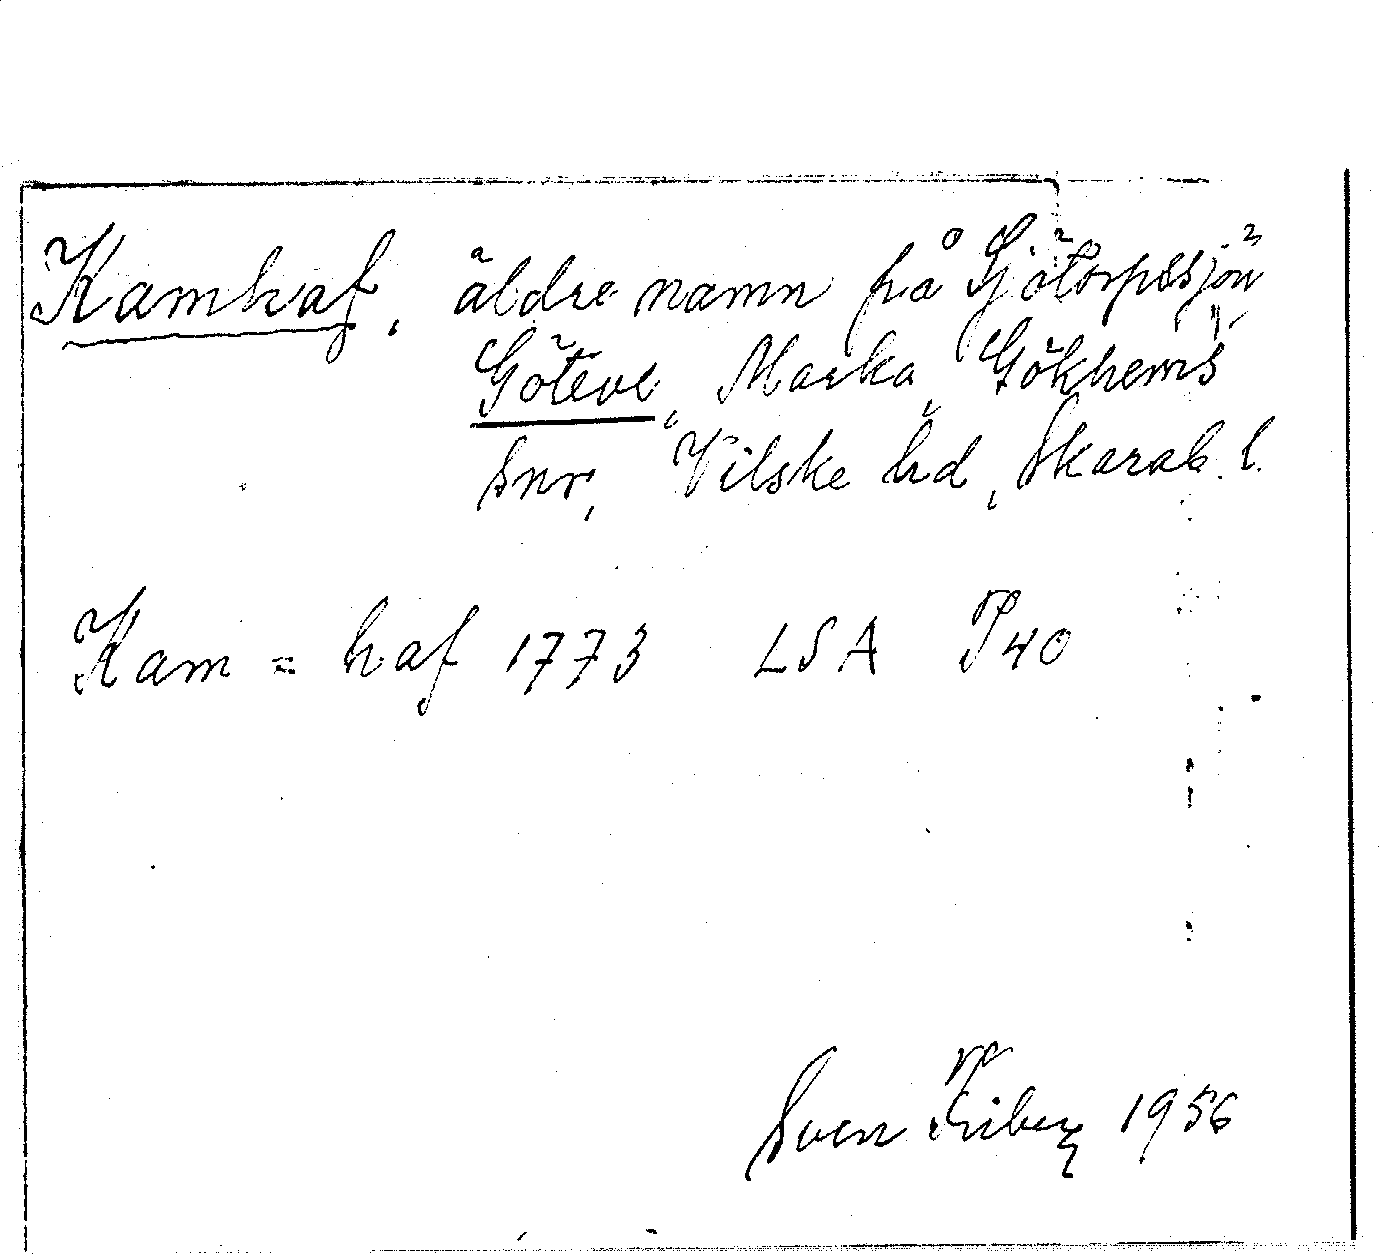 Kamhaf, äldre namn på Sjötorpssjön,
Göteve, Marka, Gökhems
snr, Vilske hd, Skarab. l.
Kam = haf 1773 LSA P40
Sven Friberg 1956